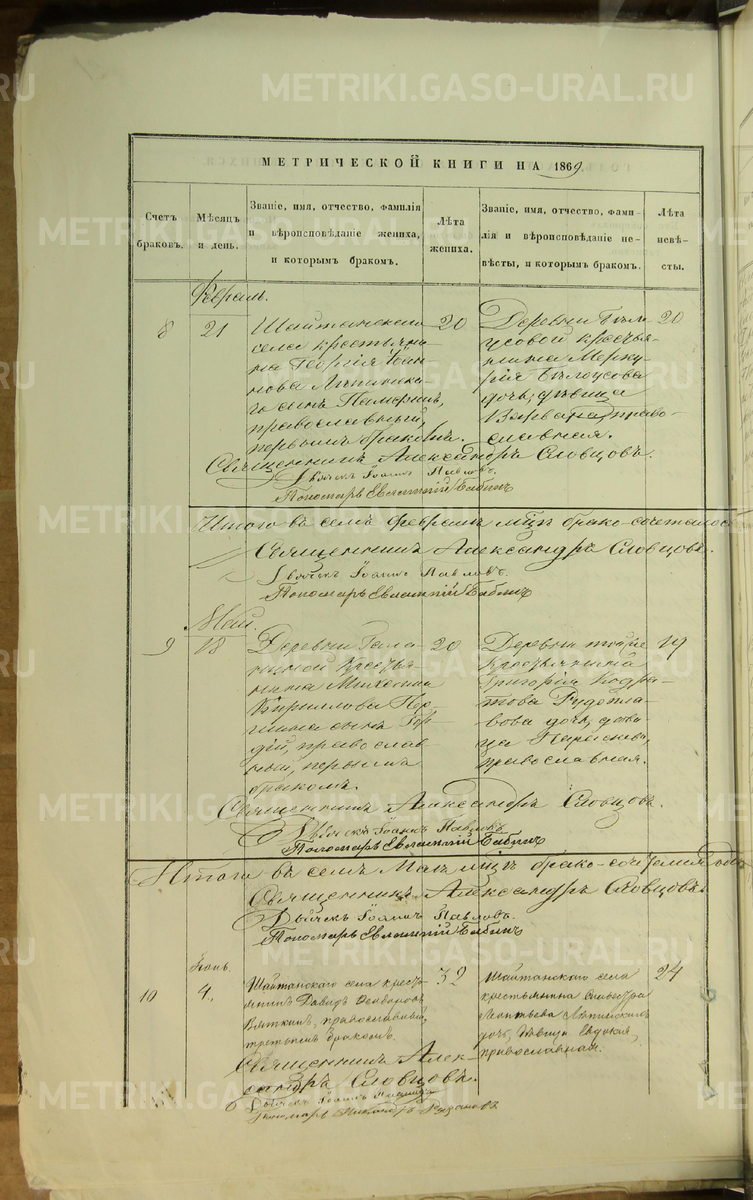 METRIKI.GASO-URAL.RU
МЕТРИЧЕСКОЙ КНИГИ НА 1869
Счетъ браковъ.
Мѣсяцъ и день.
Званіе, имя, отчество, фамилія
и вѣроисповѣданіе жениха,
и которымъ бракомъ.
Лѣта жениха.
Званіе, имя, отчество, фами-
лія и вѣроисповѣданіе не-
вѣсты, и которымъ бракомъ.
Лѣта невѣ-
сты.
Февраль.
8 21
Шайтанскаго
села крестьяни-
на Георгія Іоан-
нова
сынъ Памфилъ,
православный,
первымъ бракомъ.
20
Деревни Бѣло-
усовой крестья-
нина Мерку-
рія Бѣлоусова
дочь, дѣвица
Варвара, право-
славная.
20
Священникъ Александръ Словцовъ.
Дьячекъ Іоаннъ Павловъ.
Пономарь Евлампій Бабинъ
Итого въ семъ Февралѣ м-цѣ брако-сочеталось
Священникъ Александръ Словцовъ.
Дьячекъ Іоаннъ Павловъ.
Пономарь Евлампій Бабинъ
Май.
9 18
Деревни Гала-
ниной крестья-
нина Михаила
Кириллова
сынъ Гор-
дій, православ-
ный, первымъ
бракомъ.
20
Деревни тойже
крестьянина
Григорія
дочь, дѣви-
ца
православная.
19
Священникъ Александръ Словцовъ.
Дьячекъ Іоаннъ Павловъ.
Пономарь Евлампій Бабинъ
Итого въ семъ Маѣ м-цѣ брако-сочеталися
Священникъ Александръ Словцовъ
Дьячекъ Іоаннъ Павловъ.
Пономарь Евлампій Бабинъ
Іюнь.
10 4.
Шайтанскаго села кресть-
янинъ Давидъ Ѳеодоровъ
Вяткинъ, православный,
третьимъ бракомъ.
32
Шайтанскаго села
крестьянина Сильвестра
Леонтьева
дочь, дѣвица Евдокія,
православная.
24
Священникъ Алек-
сандръ Словцовъ.
Дьячекъ Іоаннъ Павловъ
Пономарь